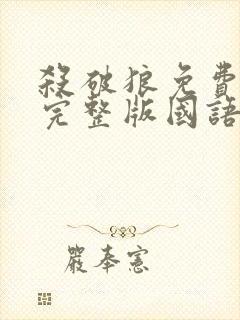 殺破狼免費
完整版國語
嚴奉憲